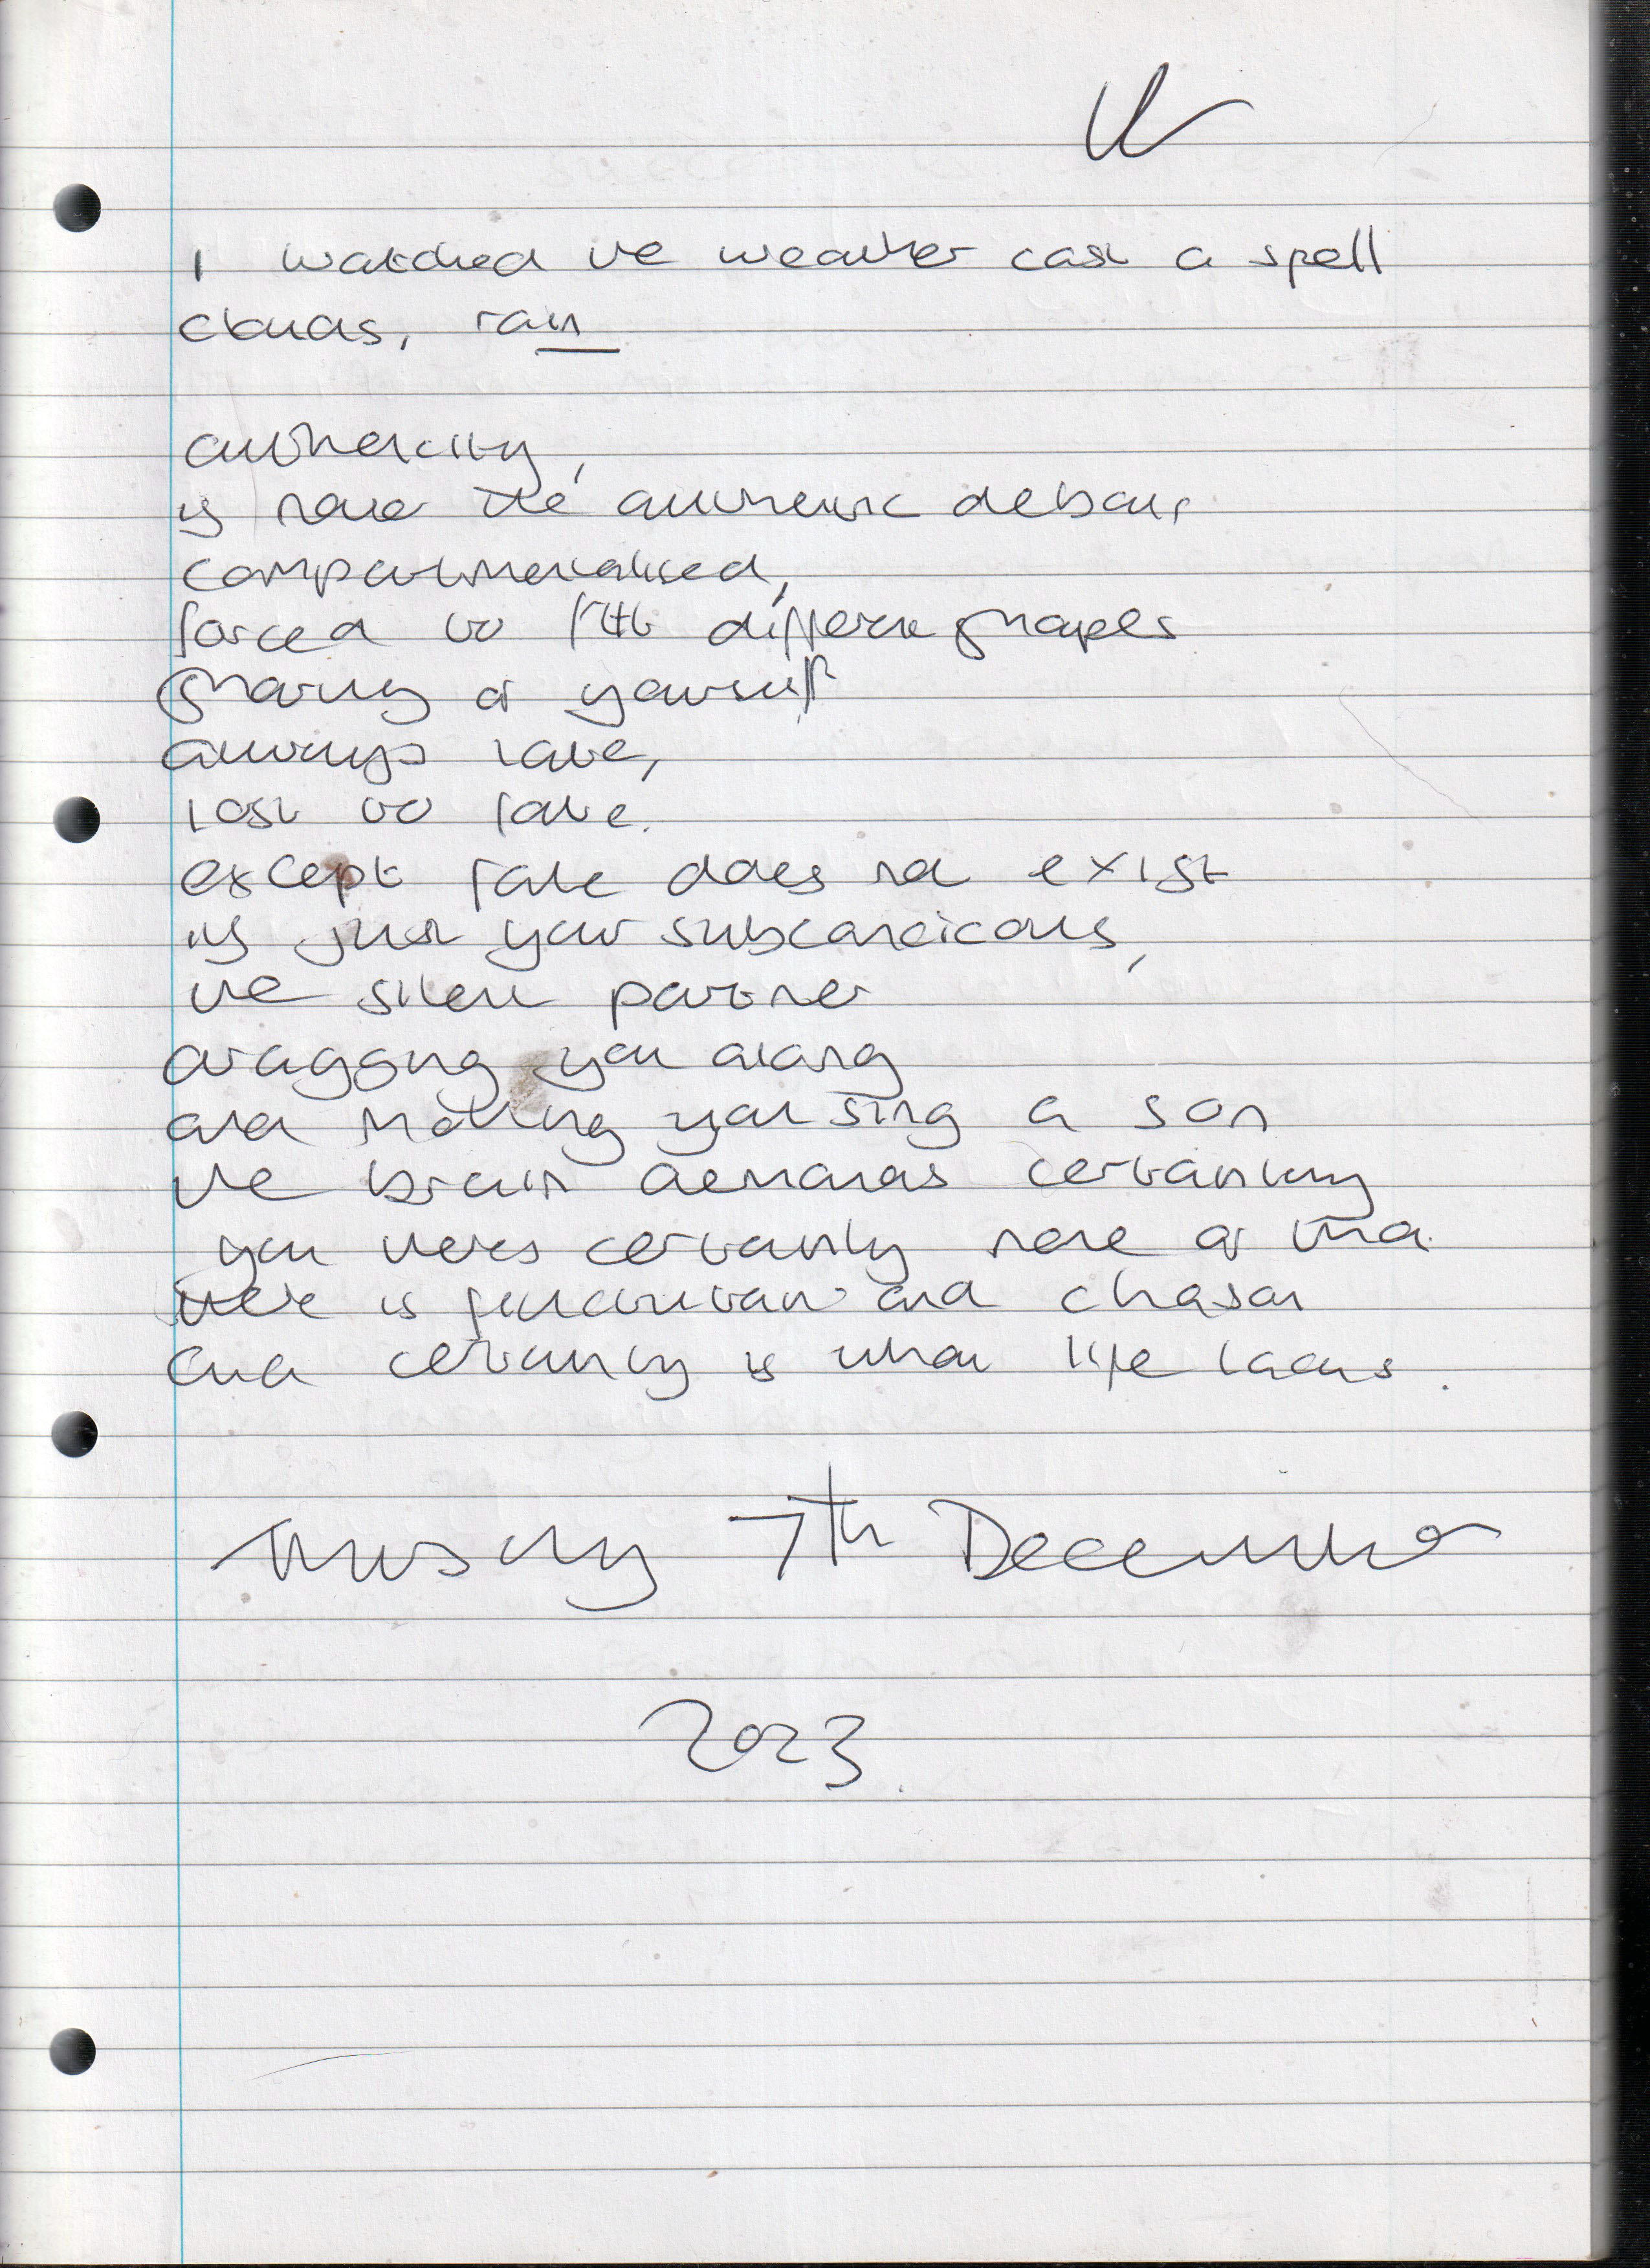 I watched the weather cast a spell
clouds, rain
authenticity,
is now the authentic debate,
compartmentalised,
forced to fit different shapes
of yourself
always late,
lost to fate.
except fate does not exist
its just your subconcious,
the silent partner
dragging you along
and making you sing a son
the brain demands certainty
you certainly none of that
there is and
and certainty is what life lacks.
Thursday 7th December
2023.